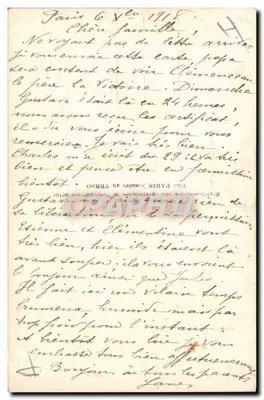 Paris 6 Xbre 1918
Chère famille,
Ne voyant pas de lettre arriver
je vous envoie cette carte papa
sera content de voir Clémenceau
le père la Victoire. Dimanche
Gustave était là en 24 heures,
nous avons reçu les certificat,
il a du vous écrire pour vous
remercier. Je vais très bien
Charles m'a écrit du 29 il va très
bien et pense être en permission
bientôt
Gustave rien de
sa libération
Etienne et Clémentine vont
très bien, hier ils étaient là
avant souper ils vous envoient
le bonjour ainsi que Jules
Il fait ici un vilain temps
brumeux, humide mais pas
trop froid pour l'instant.
A bientôt vous lire je vous
embrasse tous bien affectueusement
Bonjour à tous les parents